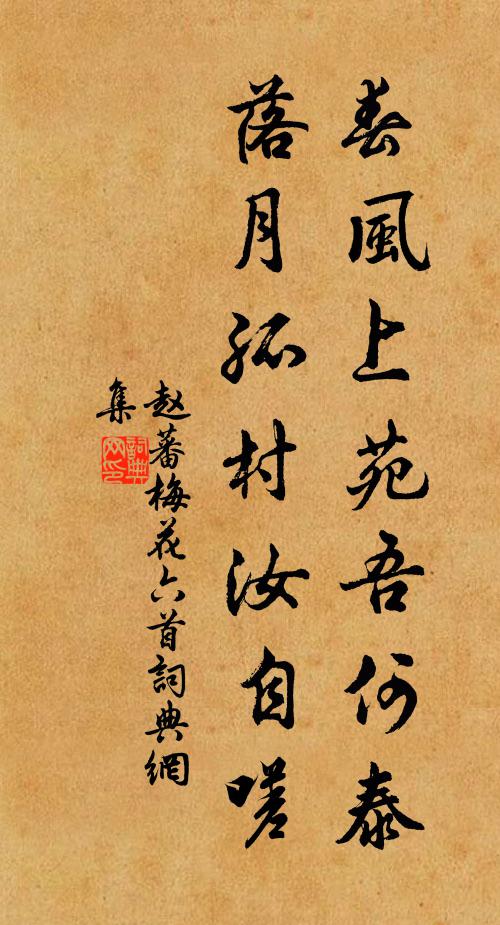 春風上苑吾何泰
落月孤村汝自嗟
赵蕃梅花六首詞典網
集
詞典網印